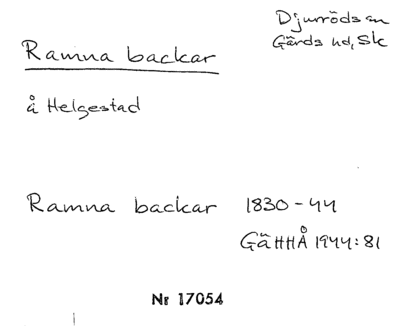 Djurröds sn
Gärds hd, Sk
Ramna backar
å Helgestad
Ramna backar 1830-44
GäHHÅ 1944:81
Nr 17054